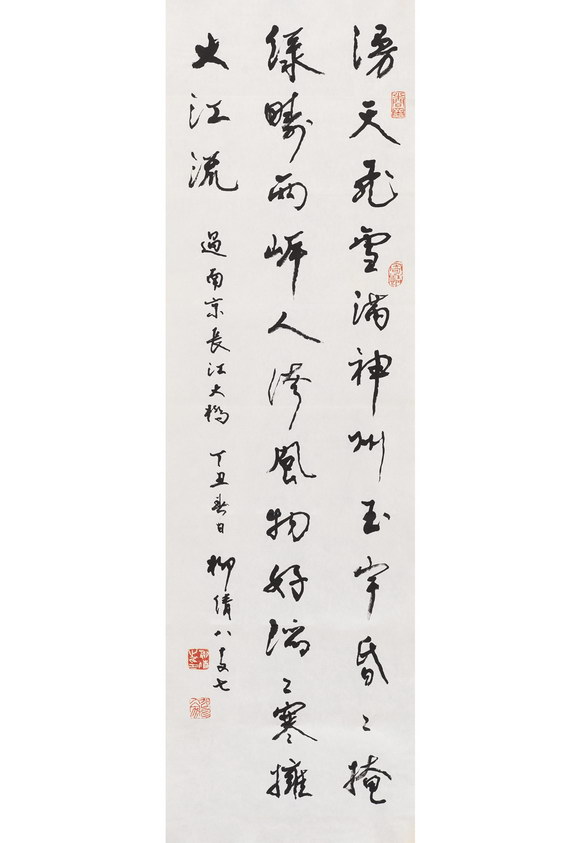 漫天飛雪滿神州玉宇昏〻掩
綠疇兩岸人誇風物好滔〻寒擁
大江流
過南京長江大橋 丁丑春日 柳倩八十又七